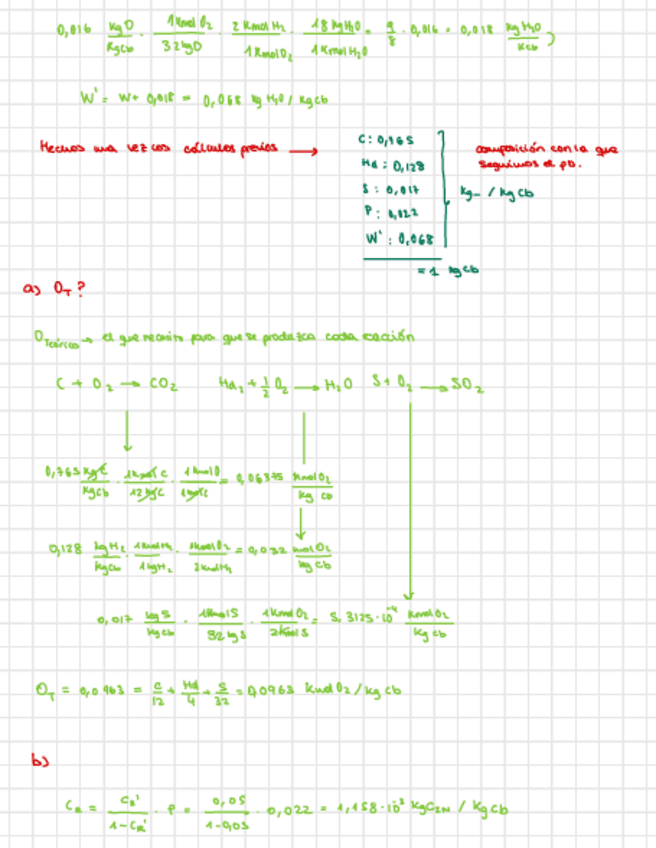 0,016 kgO/kgcb · 1kmol O2/32kgO · 2 kmol H2/1 kmol O2 · 18 kg H2O/1 kmol H2O = 9/8 · 0,016 = 0,018 kg H2O/kcb )
W' = W + 0,018 = 0,068 kg H2O / kgcb
Hechos una vez los cálculos previos →
C: 0,765
Hd: 0,128
S: 0,017
P: 0,022
W': 0,068
= 1 kgcb
kg_ / kg cb
composición con la que
seguimos el pb.
a) OT?
OTeórico → el que necesito para que se produzca cada reacción
C + O2 → CO2 Hd2 + 1/2 O2 → H2O S + O2 → SO2
0,765 kgC/kgcb · 1kmol C/12 kgC · 1kmol O/1kmol C = 0,06375 kmol O2/kg cb
0,128 kg H2/kgcb · 1kmol H2/ · 1kmol O2/2kmol H2 = 0,032 mol O2/kg cb
0,017 kg S/kgcb · 1kmol S/32 kg S · 1 kmol O2/ = 5,3125·10^-4 kmol O2/kg cb
OT = 0,0963 = C/12 + Hd/4 + S/32 = 0,0963 kmol O2 / kg cb
b)
CR = CR'/1-CR' · P = 0,05/1-0,05 · 0,022 = 1,158·10^-3 kgCIN / kg cb